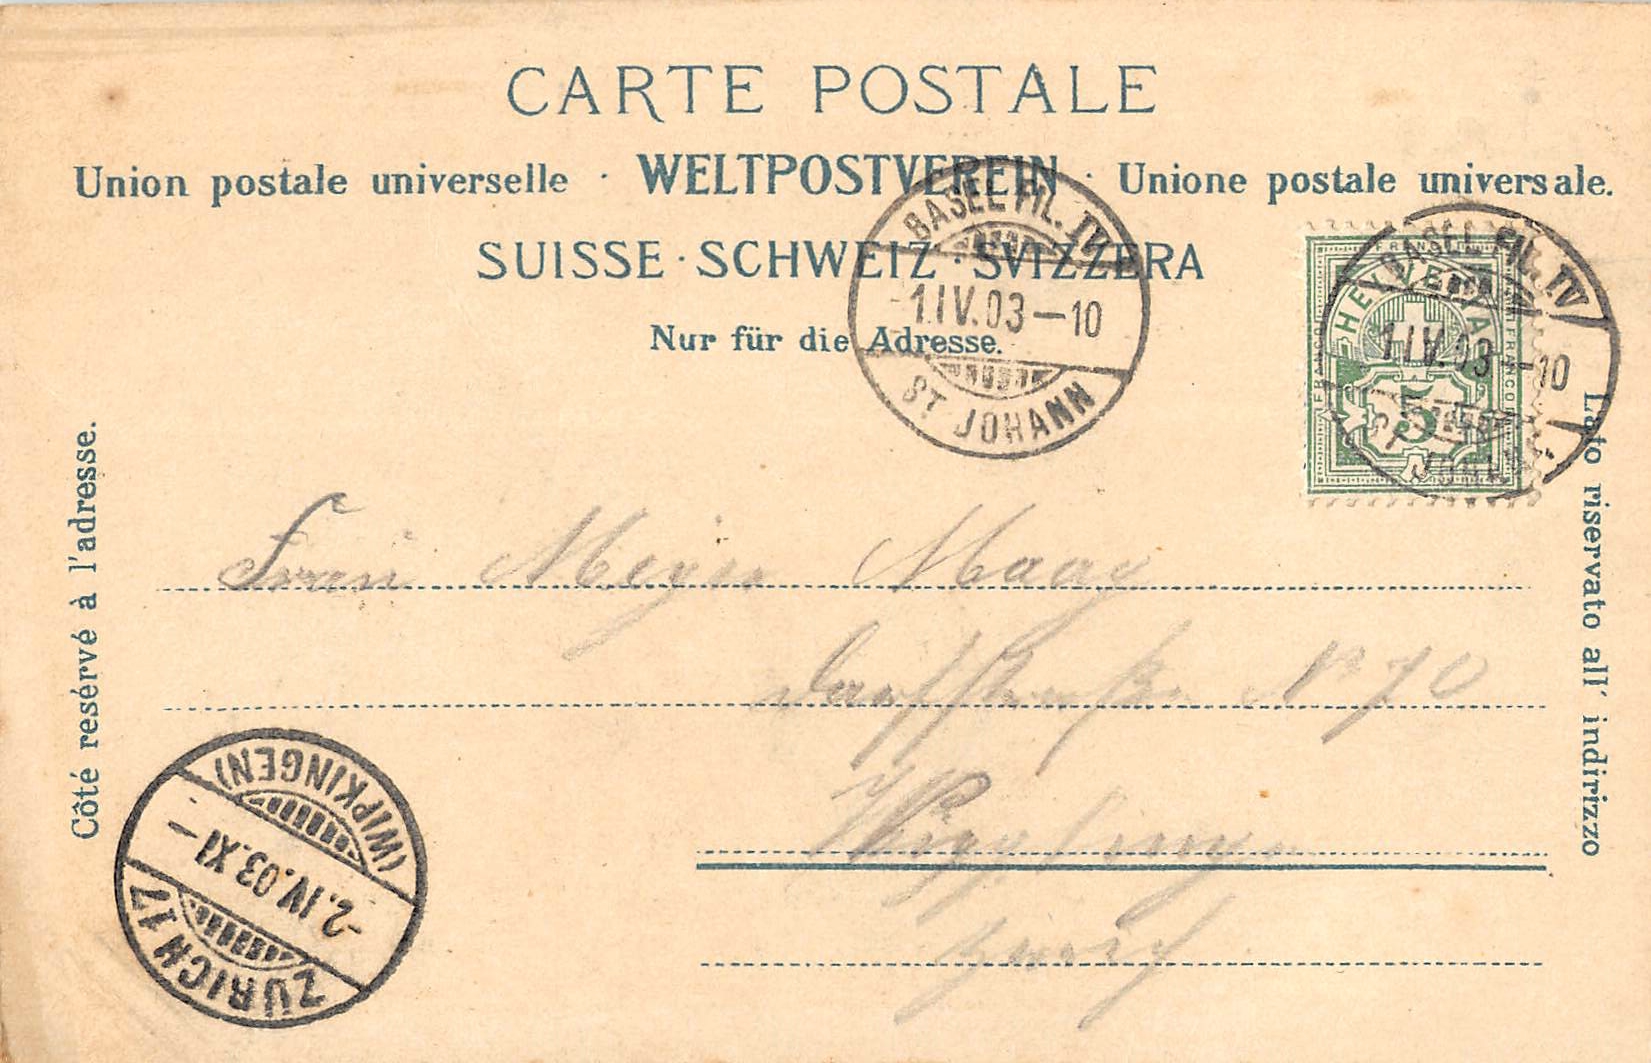 CARTE POSTALE
Union postale universelle · WELTPOSTVEREIN · Unione postale universale.
SUISSE · SCHWEIZ · SVIZZERA
Nur für die Adresse.
Côté resérvé à l'adresse.
Lato riservato all' indirizzo
BASEL FIL. IV
-1.IV.03-10
ST. JOHANN
BASEL FIL. IV
-1.IV.03-10
ST. JOHANN
FRANCO
HELVETIA
FRANCO
FRANCO
5
Frau Meyer Maag
No 70
Wipkingen
Zürich
(WIPKINGEN)
-2.IV.03.XI-
ZÜRICH 17